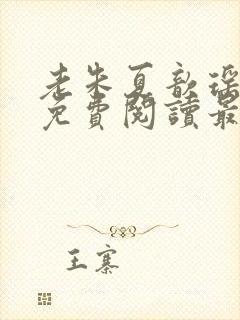 老朱夏歆瑶
免費閱讀最
王寨